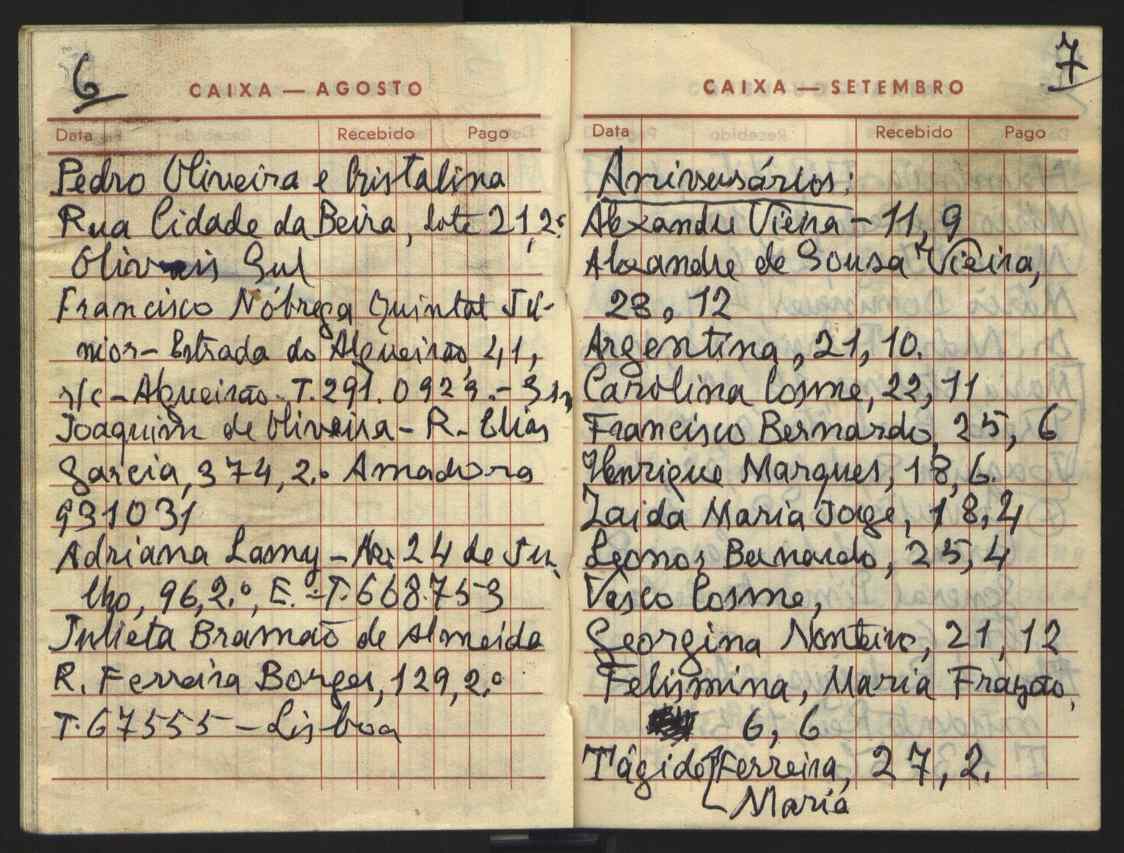 6
CAIXA — AGOSTO
Data Recebido Pago
Pedro Oliveira e Cristalina
Rua Cidade da Beira, lote 21, 2.º
Olivais Sul
Francisco Nóbrega Quintal Jú-
nior - Estrada do Algueirão, 41,
r/c - Algueirão - T. 291.0929. -
Joaquim de Oliveira - R. Elias
Garcia, 374, 2.º Amadora
931031
Adriana Lamy - Av. 24 de Ju-
lho, 96, 2.º, E. - T. 668753
Julieta Bramão de Almeida
R. Ferreira Borges, 129, 2.º
T. 67555 - Lisboa
7
CAIXA — SETEMBRO
Data Recebido Pago
Aniversários:
Alexandre Vieira - 11, 9
Alexandre de Sousa Vieira,
28, 12
Argentina, 21, 10.
Carolina Cosme, 22, 11
Francisco Bernardo, 25, 6
Henrique Marques, 18, 6.
Zaida Maria Jorge, 18, 4
Leonor Bernardo, 25, 4
Vasco Cosme,
Georgina Monteiro, 21, 12
Felismina, Maria Frazão,
6, 6
Tágide Ferreira, 27, 2.
Maria